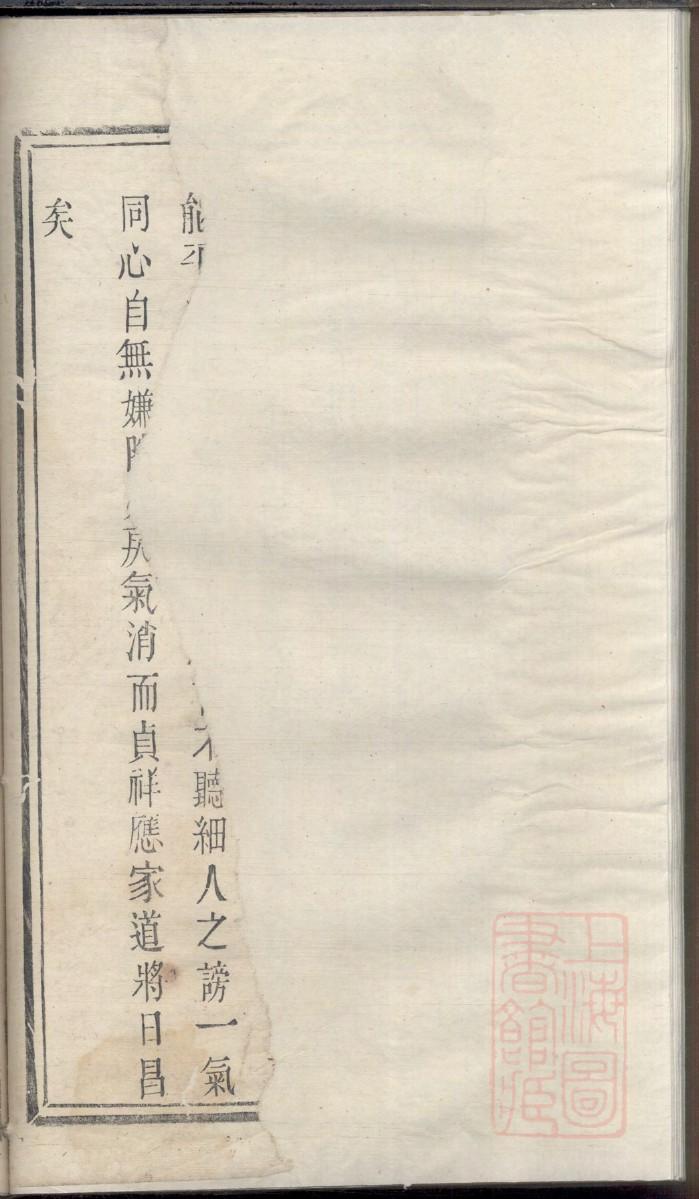 能不聽細人之謗一氣
同心自無嫌戾氣消而貞祥應家道將日昌
矣
上海圖
書館藏